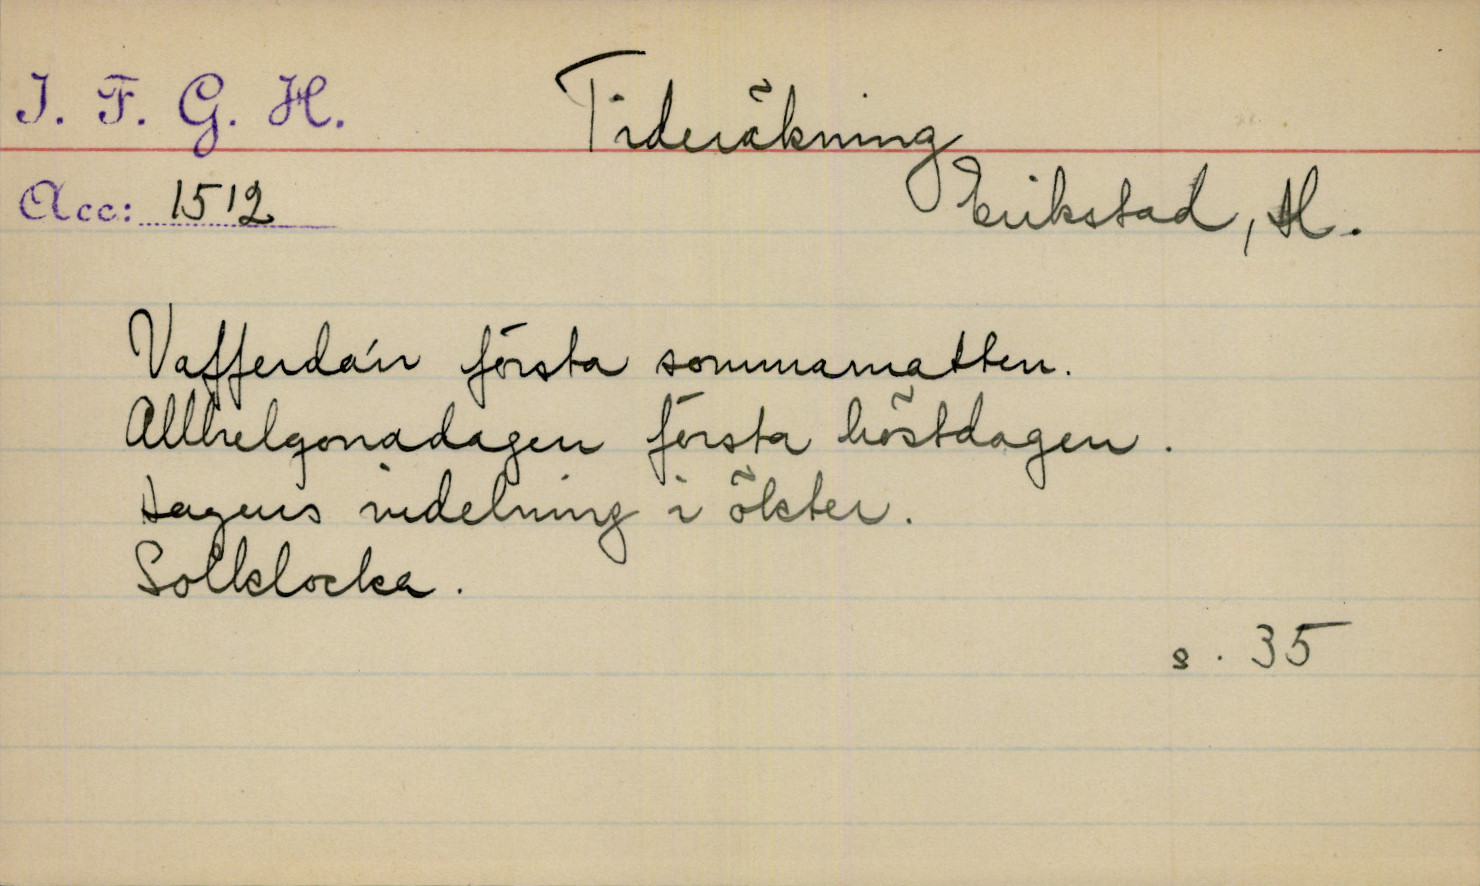 I. F. G. H.
Tideräkning
Acc: 1512
Erikstad, H.
Vafferda'n första sommarnatten.
Allhelgonadagen första höstdagen.
Dagens indelning i ökter.
Solklocka.
s. 35